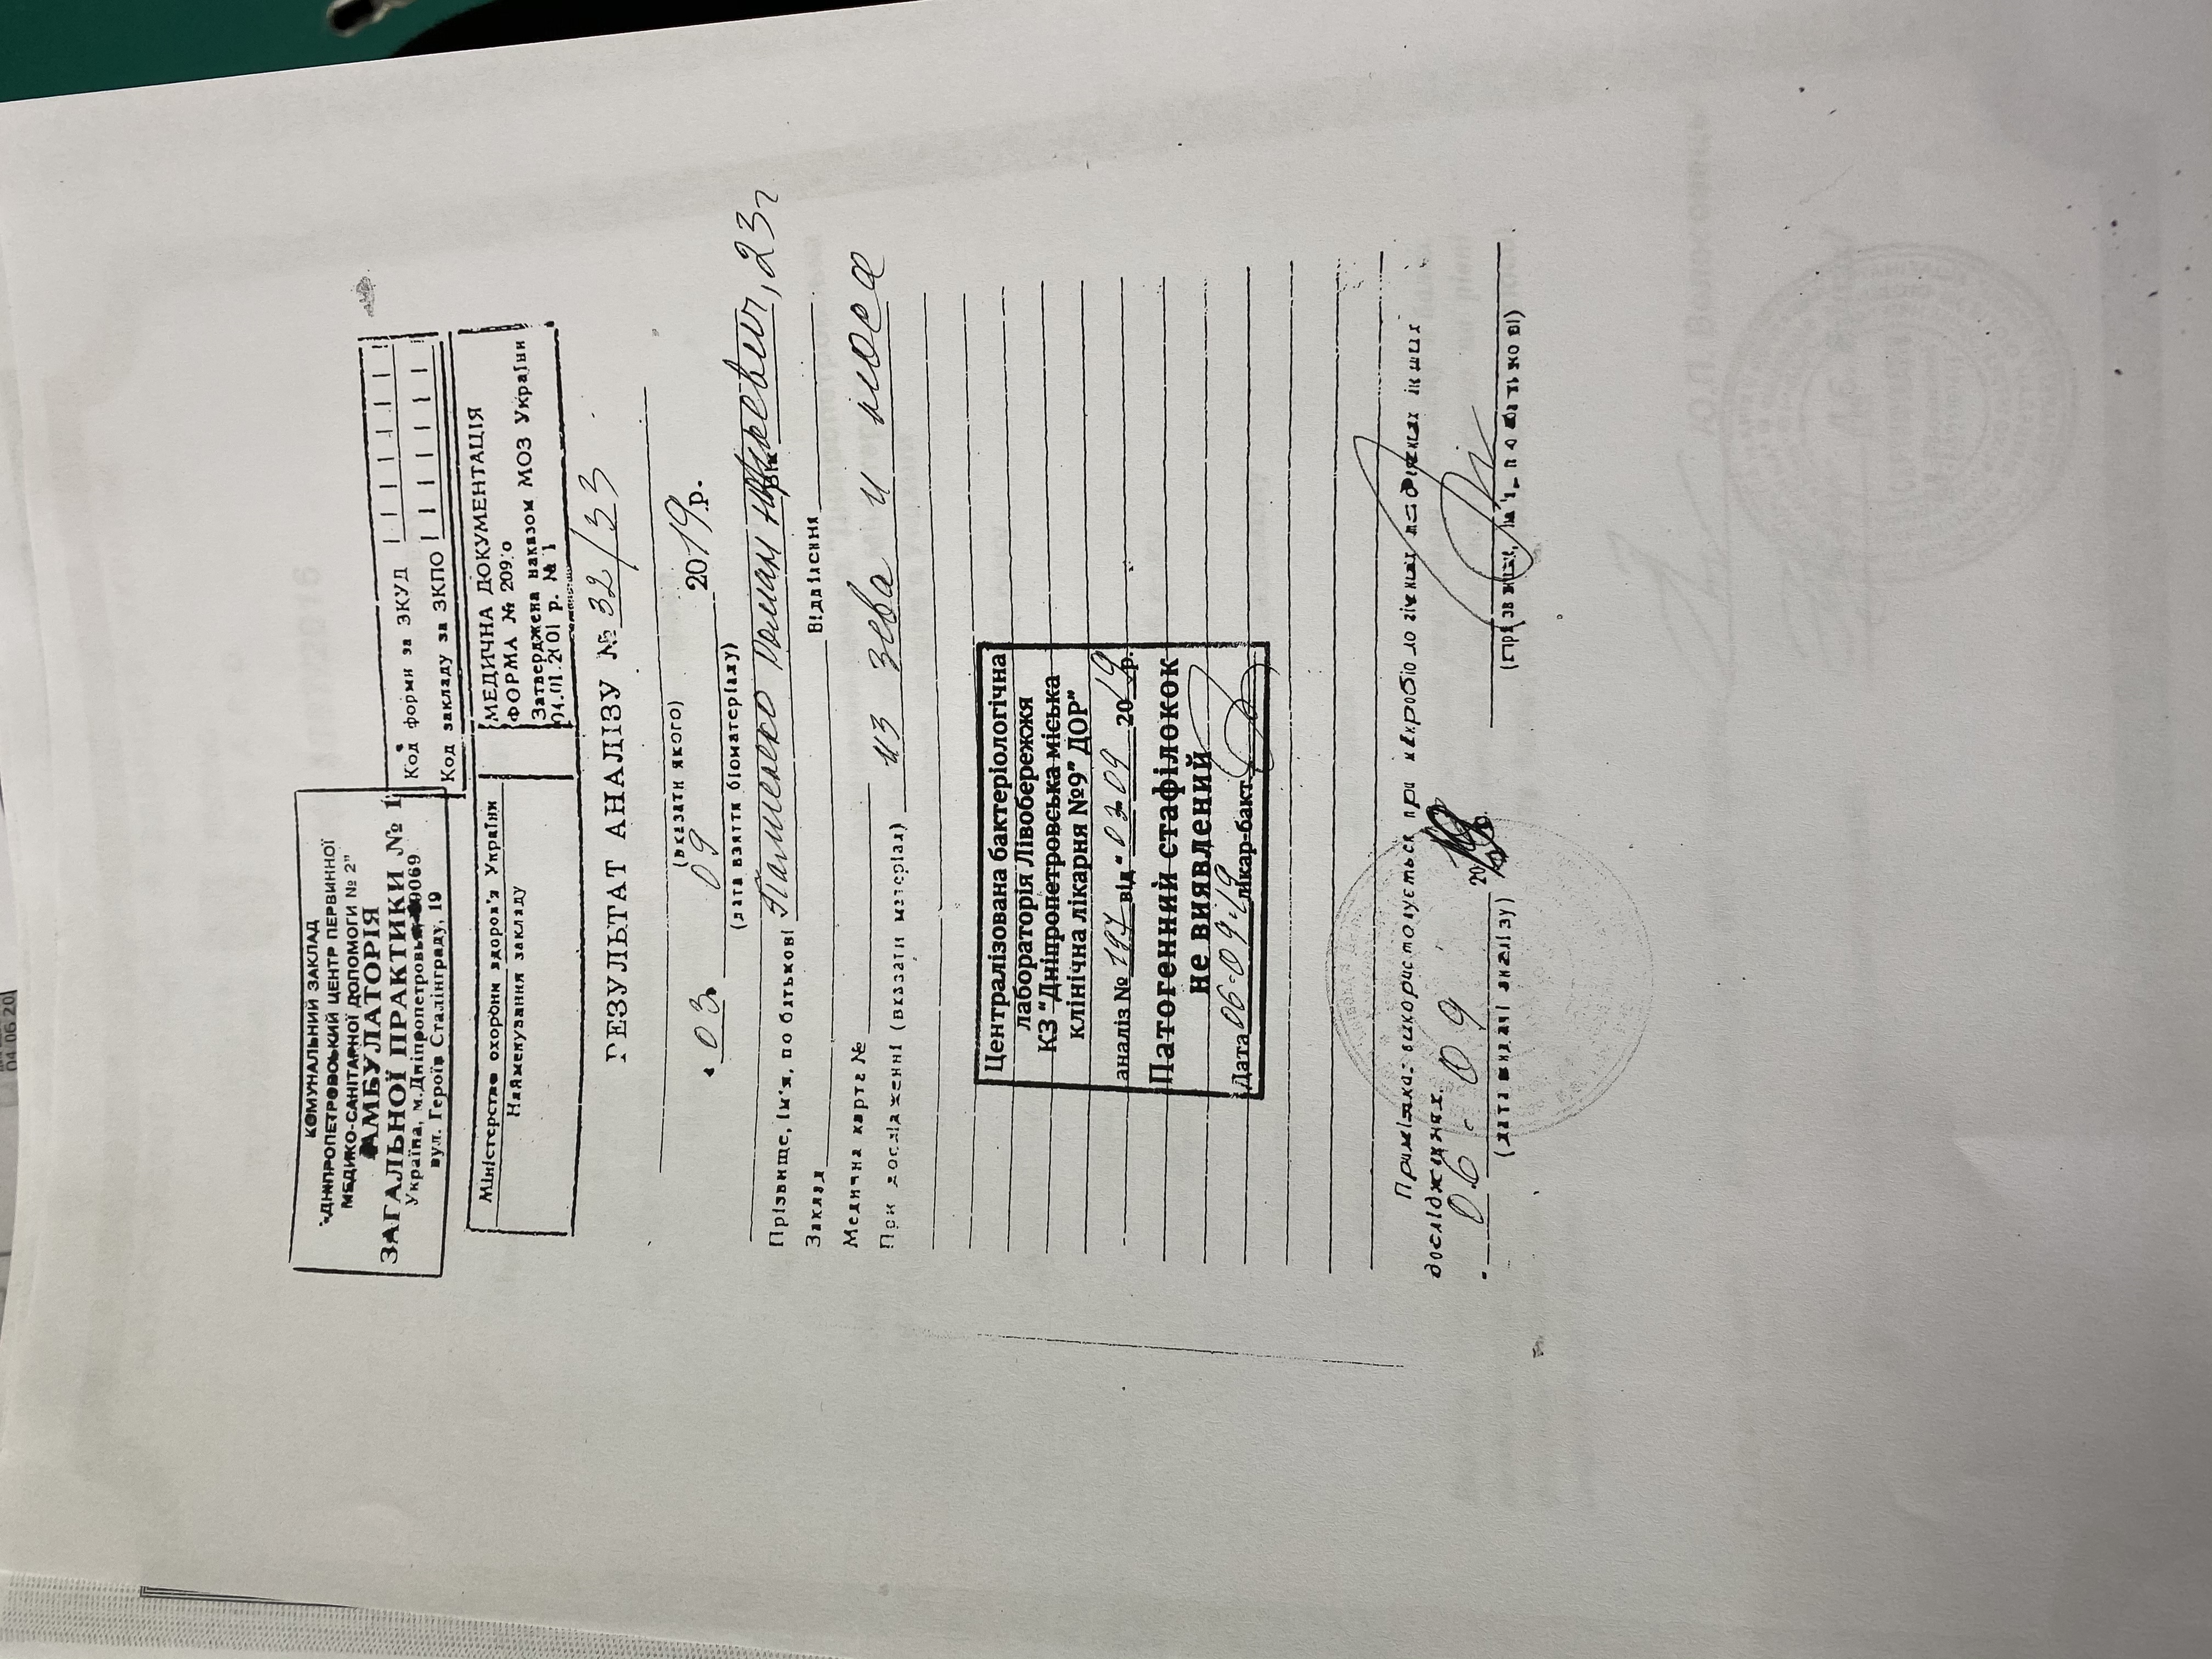 КОМУНАЛЬНИЙ ЗАКЛАД
"ДНІПРОПЕТРОВСЬКИЙ ЦЕНТР ПЕРВИННОЇ
МЕДИКО-САНІТАРНОЇ ДОПОМОГИ № 2"
АМБУЛАТОРІЯ
ЗАГАЛЬНОЇ ПРАКТИКИ № 1
Україна, м.Дніпропетровськ
вул. Героїв Сталінграду, 19
Код форми за ЗКУД
Код закладу за ЗКПО
Міністерство охорони здоров'я України
Найменування закладу
МЕДИЧНА ДОКУМЕНТАЦІЯ
ФОРМА № 209/о
Затверджена наказом МОЗ України
04.01.2101 р. № 1
РЕЗУЛЬТАТ АНАЛІЗУ № 32/33
(вказати якого)
03 09 2019 р.
(дата взяття біоматеріалу)
Прізвище, ім'я, по батькові Роман 23
Заклад Відділення
Медична карта №
При дослідженні (вказати матеріал) из зева и носа
Централізована бактеріологічна
лабораторія Лівобережжя
КЗ "Дніпропетровська міська
клінічна лікарня №9" ДОР"
аналіз № від " 03.09 2019 р.
Патогенний стафілокок
не виявлений
Дата 06.09.19 лікар-бакт
Примітка: використовується при мікробіологічних подібних інших
дослідженнях.
06. 09 20
(дата видачі аналізу) (прізвище, ім'я, по батькові)
04.06.20